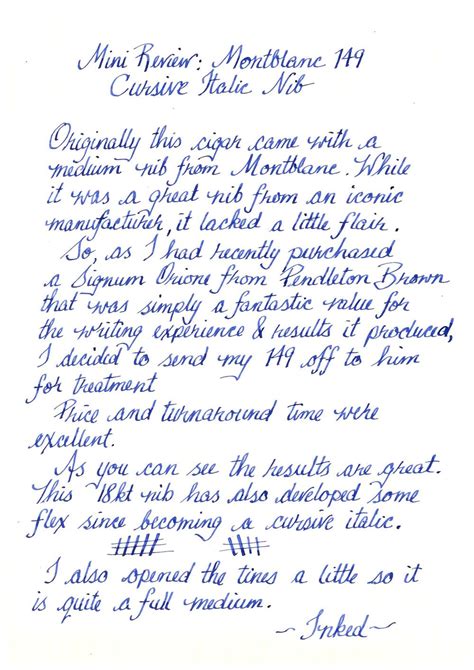 Mini Review: Montblanc 149
Cursive Italic Nib
Originally this cigar came with a
medium nib from Montblanc. While
it was a great nib from an iconic
manufacturer, it lacked a little flair.
So, as I had recently purchased
a Signum Orione from Pendleton Brown
that was simply a fantastic value for
the writing experience & results it produced,
I decided to send my 149 off to him
for treatment
Price and turnaround time were
excellent.
As you can see the results are great.
This 18kt nib has also developed some
flex since becoming a cursive italic.
I also opened the tines a little so it
is quite a full medium.
~Inked~